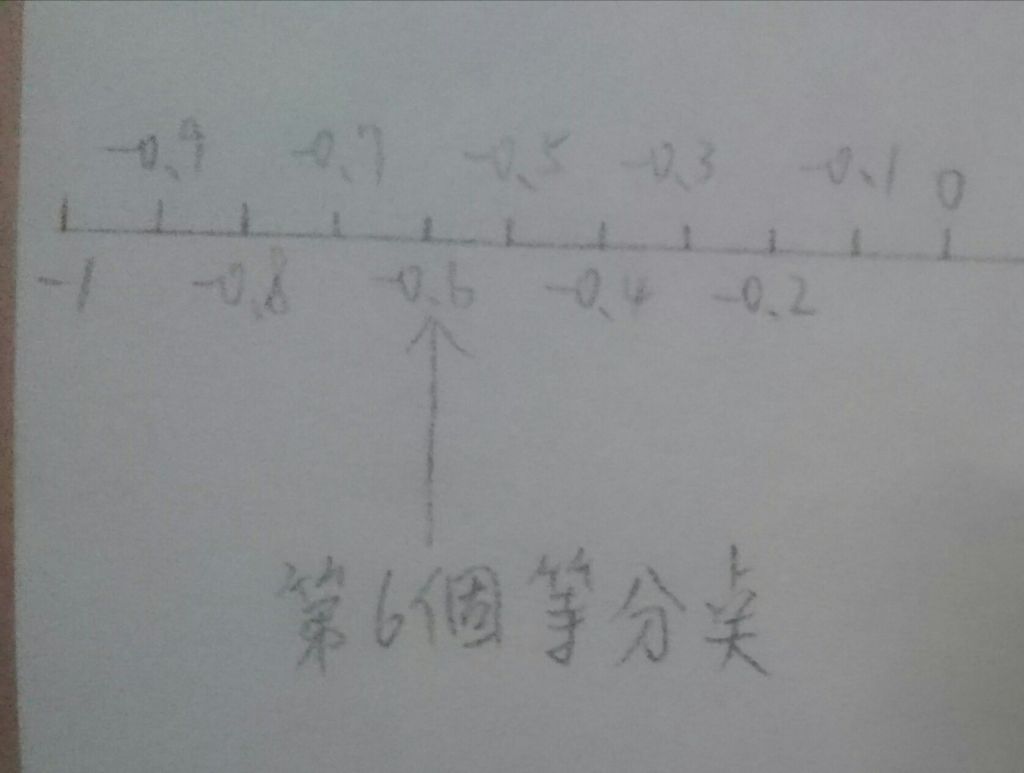 -0.9 -0.7 -0.5 -0.3 -0.1 0
-1 -0.8 -0.6 -0.4 -0.2
第6個等分点